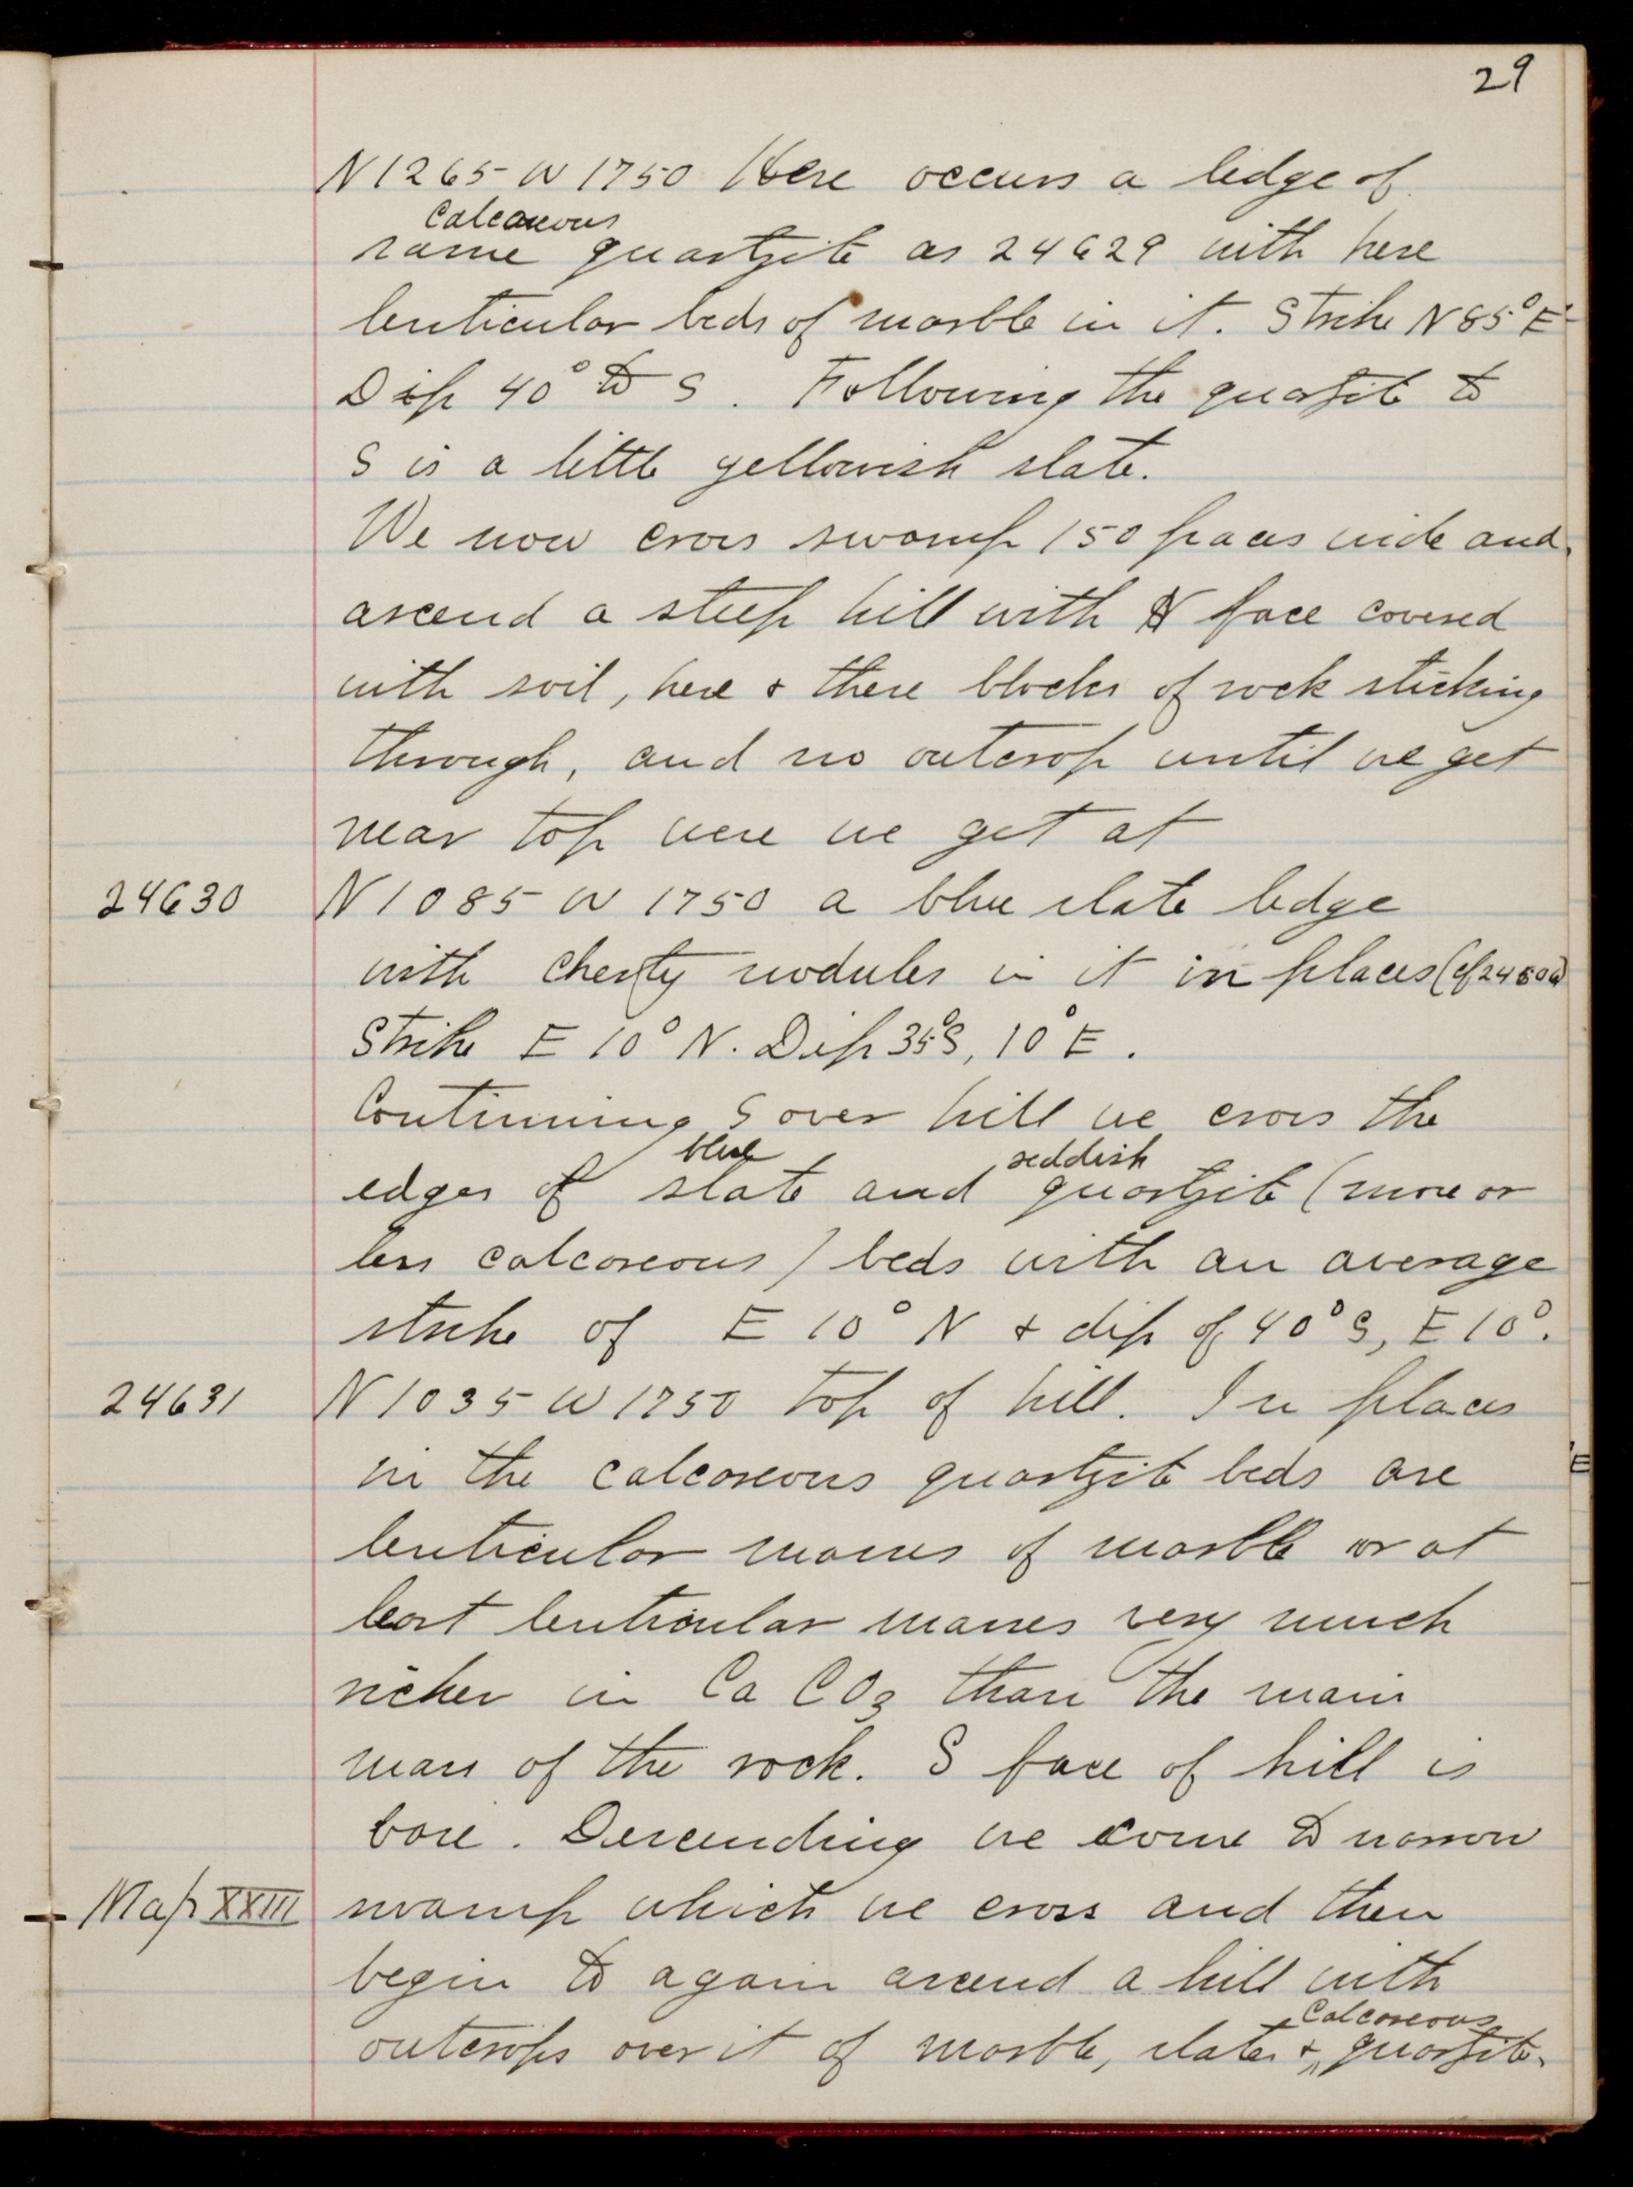 29
N 1265 W 1750 Here occurs a ledge of
calcareous
same quartzite as 24629 with here
lenticular beds of marble in it. Strike N 85° E
Dip 40° to S. Following the quartzite to
S is a little yellowish slate.
We now cross swamp 150 paces wide and
ascend a steep hill with N face covered
with soil, here & there blocks of rock sticking
through, and no outcrop until we get
near top were we get at
24630 N 1085 W 1750 a blue slate ledge
with cherty nodules in it in places (cf
Strike E 10° N. Dip 35° S, 10° E.
Continuing S over hill we cross the
blue reddish
edges of slate and quartzite (more or
less calcareous) beds with an average
strike of E 10° N & dip of 40° S, E 10°.
24631 N 1035 W 1750 top of hill. In places
in the calcareous quartzite beds are
lenticular masses of marble or at
least lenticular masses very much
richer in Ca CO3 than the main
mass of the rock. S face of hill is
bare. Descending we come to narrow
Map XXIII swamp which we cross and then
begin to again ascend a hill with
calcareous
outcrops over it of marble, slate & quartzite.